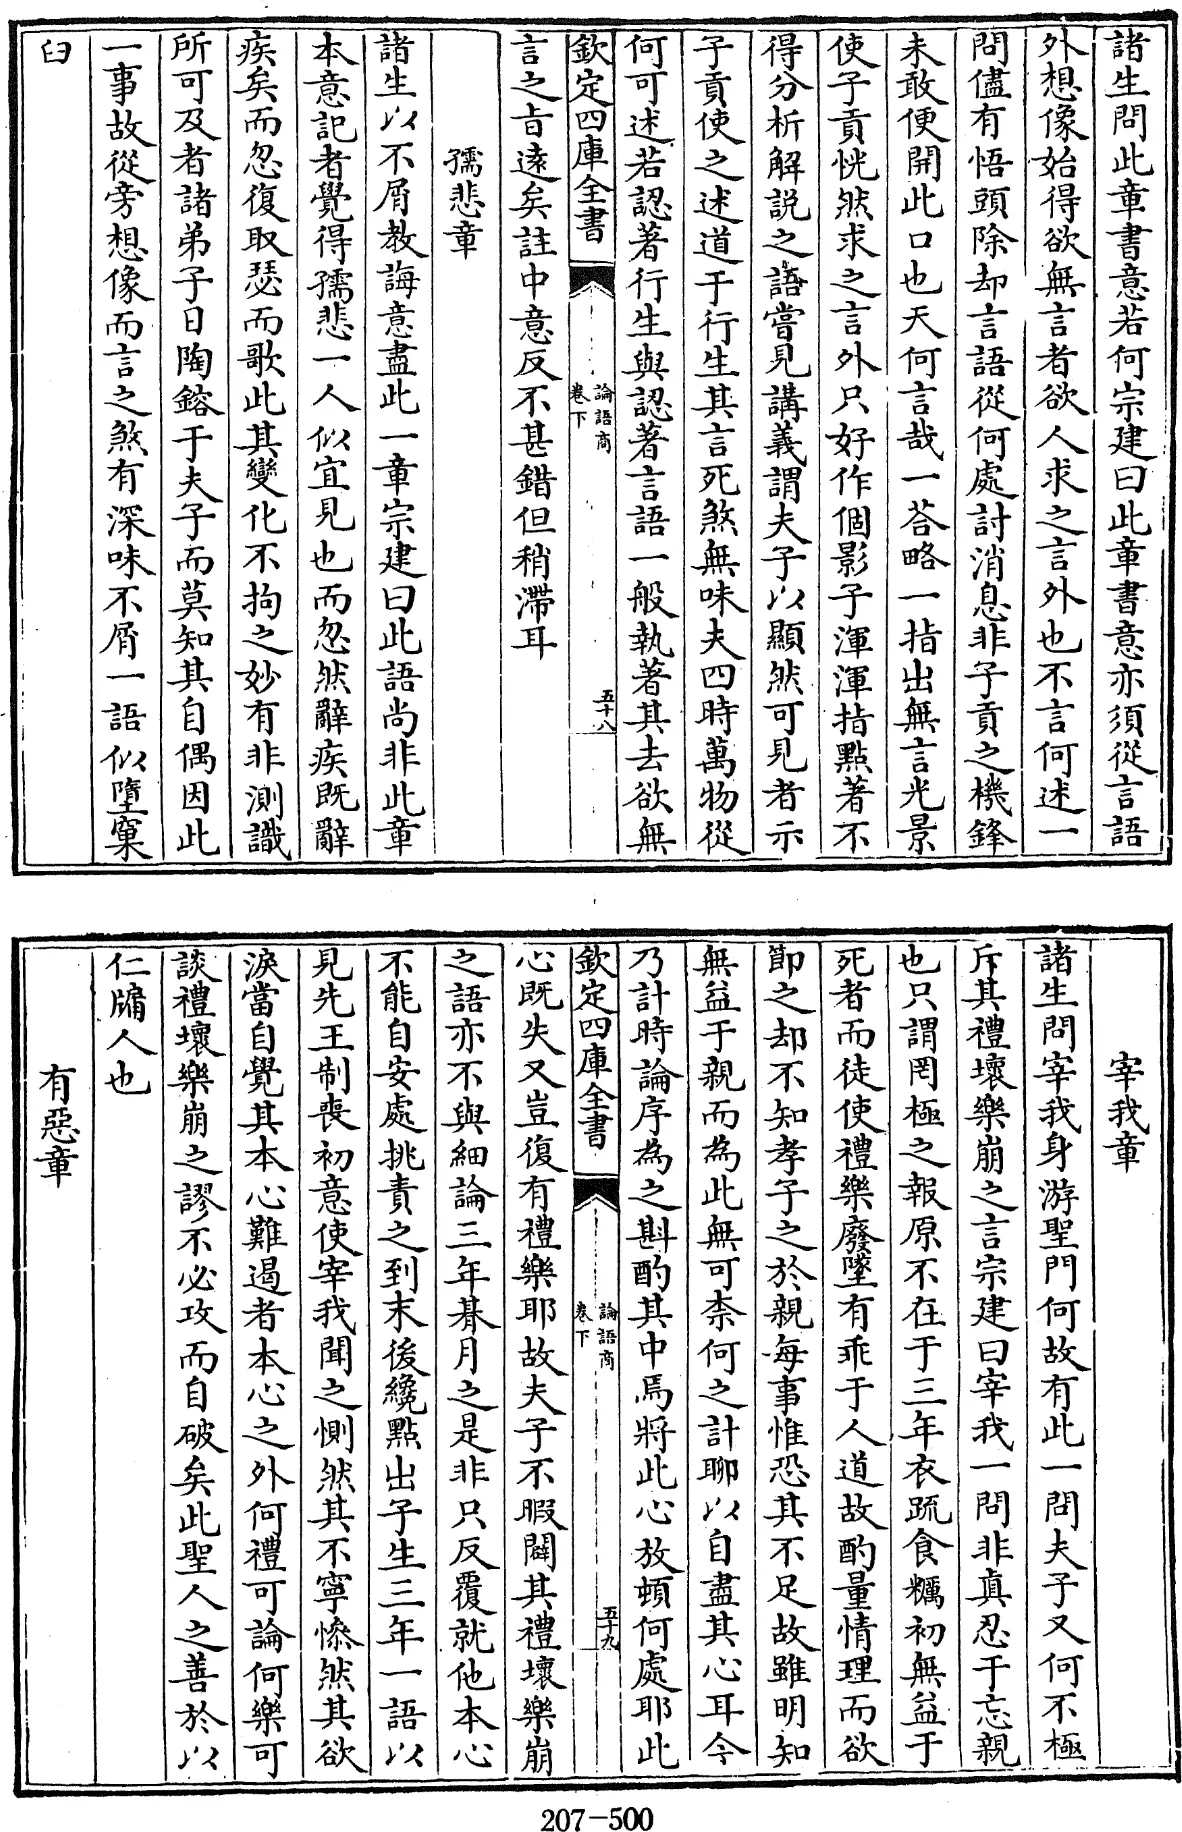 諸生問此章書意若何宗建曰此章書意亦須從言語
外想像始得欲無言者欲人求之言外也不言何述一
問儘有悟頭除却言語從何處討消息非子貢之機鋒
未敢便開此口也天何言哉一荅略一指出無言光景
使子貢恍然求之言外只好作個影子渾渾指點著不
得分析解説之語嘗見講義謂夫子以顯然可見者示
子貢使之述道于行生其言死煞無味夫四時萬物從
何可述若認著行生與認著言語一般執著其去欲無
欽定四庫全書
論語商
卷下
五十八
言之旨遠矣註中意反不甚錯但稍滯耳
孺悲章
諸生以不屑教誨意盡此一章宗建曰此語尚非此章
本意記者覺得孺悲一人似宜見也而忽然辭疾既辭
疾矣而忽復取瑟而歌此其變化不拘之妙有非測識
所可及者諸弟子日陶鎔于夫子而莫知其自偶因此
一事故從旁想像而言之煞有深味不屑一語似墮窠
臼
宰我章
諸生問宰我身游聖門何故有此一問夫子又何不極
斥其禮壞樂崩之言宗建曰宰我一問非真忍于忘親
也只謂罔極之報原不在于三年衣疏食糲初無益于
死者而徒使禮樂廢墜有乖于人道故酌量情理而欲
節之却不知孝子之於親每事惟恐其不足故雖明知
無益于親而為此無可柰何之計聊以自盡其心耳今
乃計時論序為之斟酌其中焉將此心放頓何處耶此
欽定四庫全書
論語商
卷下
五十九
心既失又豈復有禮樂耶故夫子不暇闢其禮壞樂崩
之語亦不與細論三年朞月之是非只反覆就他本心
不能自安處挑責之到末後纔點出子生三年一語以
見先王制喪初意使宰我聞之惻然其不寧慘然其欲
淚當自覺其本心難遏者本心之外何禮可論何樂可
談禮壞樂崩之謬不必攻而自破矣此聖人之善於以
仁牖人也
有惡章
207-500